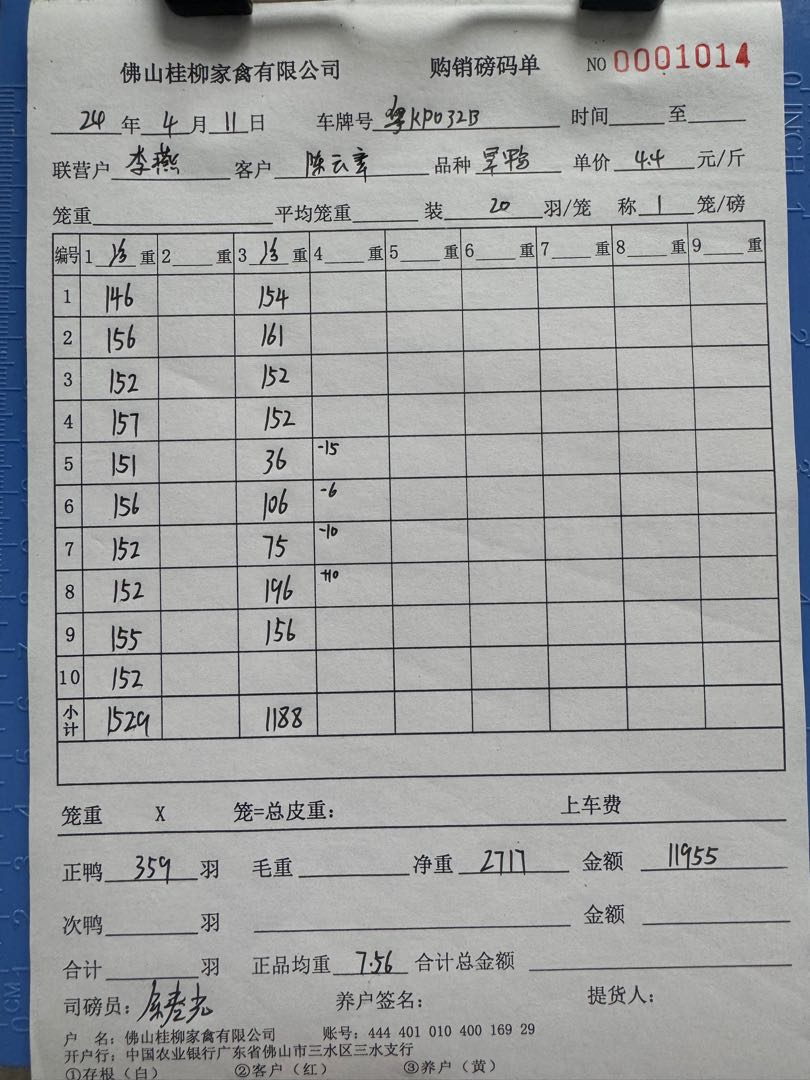 佛山桂柳家禽有限公司 购销磅码单 NO 0001014
24 年 4 月 11 日 车牌号 粤KP032B 时间 至
联营户 李燕 客户 陈云章 品种 旱鸭 单价 4.4 元/斤
笼重 平均笼重 装 20 羽/笼 称 1 笼/磅
编号 1 净 重 2 重 3 净 重 4 重 5 重 6 重 7 重 8 重 9 重
1 146 154
2 156 161
3 152 152
4 157 152
5 151 36 -15
6 156 106 -6
7 152 75 -10
8 152 196 +10
9 155 156
10 152
小计 1529 1188
笼重 X 笼=总皮重: 上车费
正鸭 359 羽 毛重 净重 2717 金额 11955
次鸭 羽 金额
合计 羽 正品均重 7.56 合计总金额
司磅员: 养户签名: 提货人:
户 名: 佛山桂柳家禽有限公司 账号: 444 401 010 400 169 29
开户行: 中国农业银行广东省佛山市三水区三水支行
①存根(白) ②客户(红) ③养户(黄)
0 INCH 1
0 CM 1 2 3 4 5